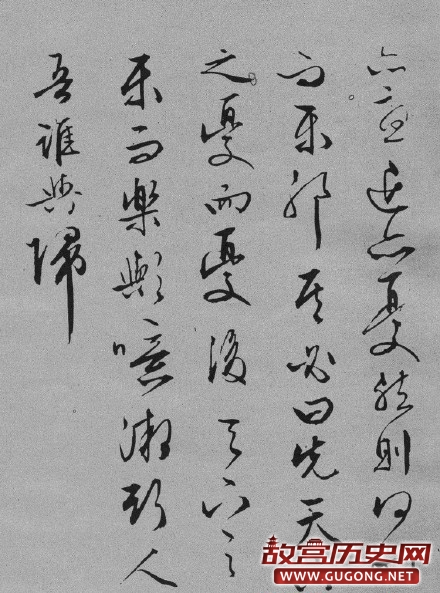 亦憂退亦憂然則何時
而樂耶其必曰先天下
之憂而憂後天下之
樂而樂歟噫微斯人
吾誰與歸
故宫历史网
WWW.GUGONG.NET